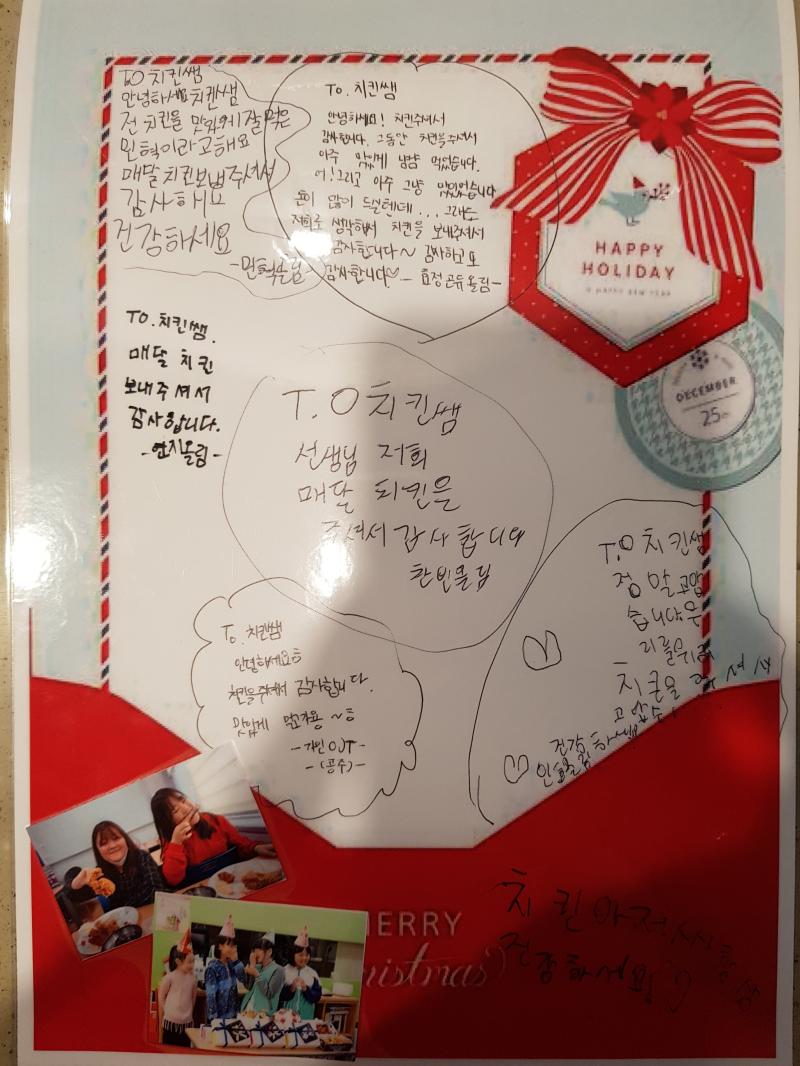 TO 치킨쌤
안녕하세요 치킨쌤
전 치킨을 맛있게 잘 먹은
민혁이라고해요
매달 치킨보내주셔서
감사해요
건강하세요
-민혁올림-
To. 치킨쌤
안녕하세요! 치킨주셔서
감사합니다. 그동안 치킨을 주셔서
아주 맛있게 냠냠 먹었습니다.
어!그리고 아주 그냥 맛있었습니다
돈이 많이 드실텐데... 그래도
저희를 생각해서 치킨을 보내주셔서
감사합니다~ 감사하고요
감사합니다♡
올림-
HAPPY
HOLIDAY
& HAPPY NEW YEAR
DECEMBER
25th
TO. 치킨쌤.
매달 치킨
보내주셔서
감사합니다.
-연지올림-
T.O 치킨쌤
선생님 저희
매달 치킨을
주셔서 감사합니다
한빈올림
To. 치킨쌤
안녕하세요
치킨을 주셔서 감사합니다.
맛있게 먹고가용~ㅎ
-가인 OJT-
-(공주)-
T.O 치킨쌤
정말고맙
습니다우
리를위해
치큰을 주셔서
고맙습
건강하세요
치킨아저씨 항상
건강하세요
MERRY
Christmas